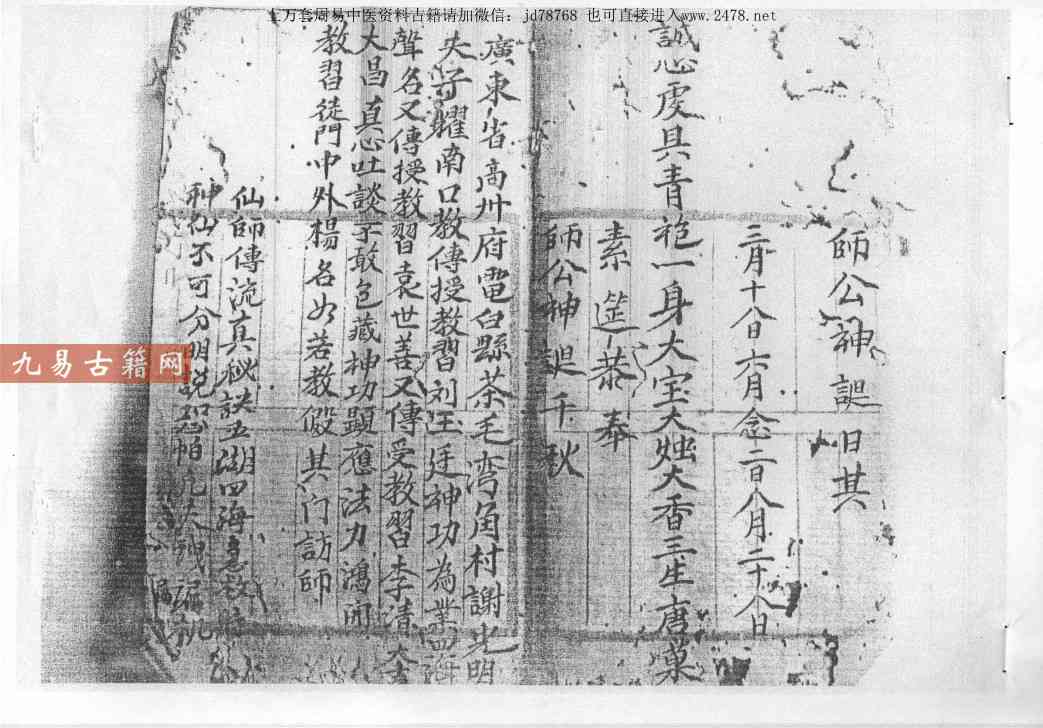 上万套周易中医资料古籍请加微信：jd78768 也可直接进入www.2478.net
師公神誕日其
三月十八日六月念二日八月二十八日
誠心虔具青袍一身大宝大烛大香三生唐菓
素筵恭奉
師公神誕千秋
廣東省高州府電白縣茶毛湾角村謝光明
夫子耀南口教傳授教習刘玉廷神功為業四海
聲名又傳授教習袁世善又傳受教習李清
大昌真心吐談不敢包藏神功顕應法力鴻開
教習徒門中外楊名如若教假其门訪師
仙師傳流真秘訣五湖四海急救
神仙不可分明説恐怕凡夫洩漏机
九易古籍网